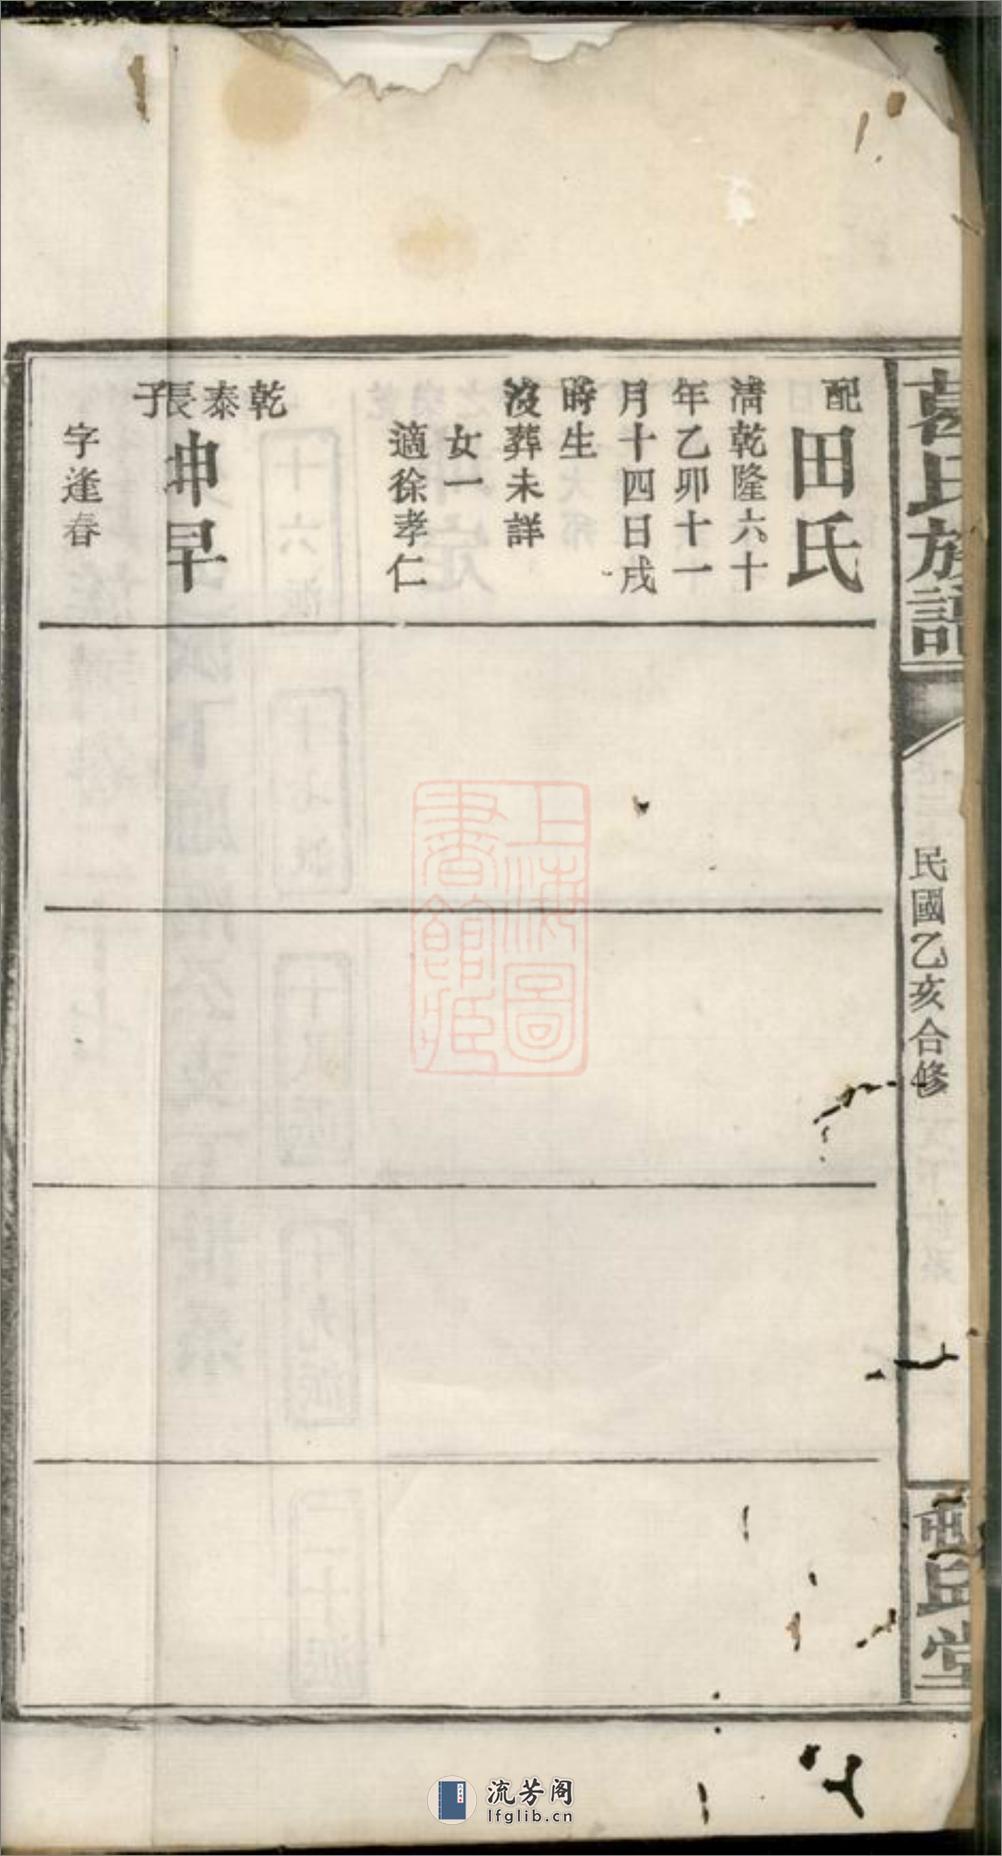 葛氏族譜
民國乙亥合修
丘堂
配田氏
淸乾隆六十
年乙卯十一
月十四日戌
時生
沒葬未詳
女一
適徐孝仁
乾泰長子
坤早
字逢春
上海圖
書館藏
流芳阁
lfglib.cn